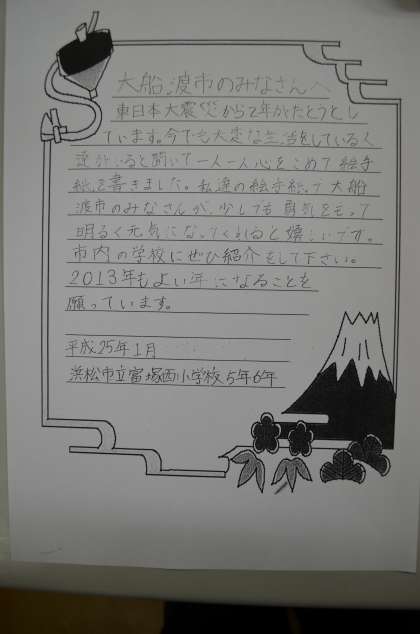 大船渡市のみなさんへ
東日本大震災から2年がたとうとし
ています。今でも大変な生活をしているく
達がいると聞いて一人一人心をこめて絵手
紙を書きました。私達の絵手紙って大船
渡市のみなさんが、少しでも勇気をもって
明るく元気になってくれると嬉しいです。
市内の学校にぜひ紹介をして下さい。
2013年もよい年になることを
願っています。
平成25年1月
浜松市立富塚西小学校5年6年